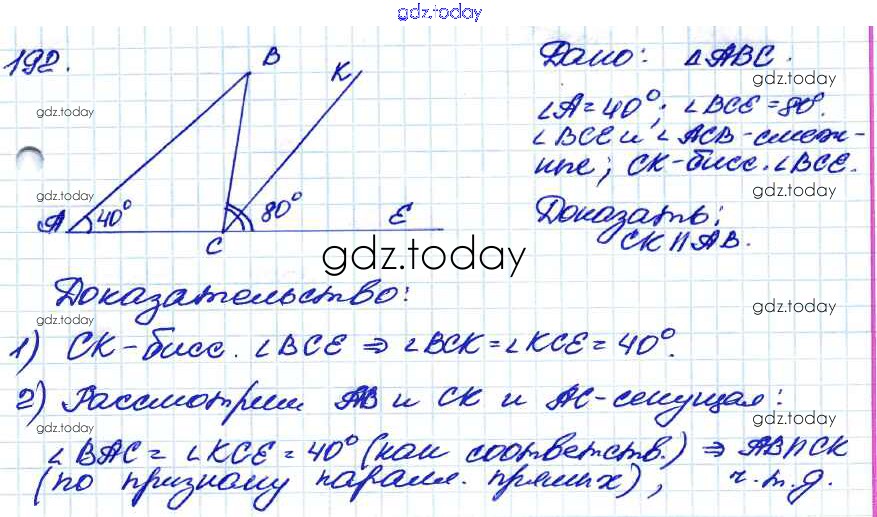 gdz.today
192.
B
K
gdz.today
A
40°
C
80°
E
Дано: △ABC.
gdz.today
∠A = 40°; ∠BCE = 80°.
∠BCE и ∠ACB - смеж-
ные; CK - бисс. ∠BCE.
gdz.today
gdz.today
Доказать:
CK || AB.
gdz.today
Доказательство:
gdz.today
gdz.today
1) CK - бисс. ∠BCE ⇒ ∠BCK = ∠KCE = 40°.
2) Рассмотрим AB и CK и AC - секущая:
gdz.today
gdz.today
∠BAC = ∠KCE = 40° (как соответств.) ⇒ AB || CK
(по признаку паралл. прямых), ч.т.д.